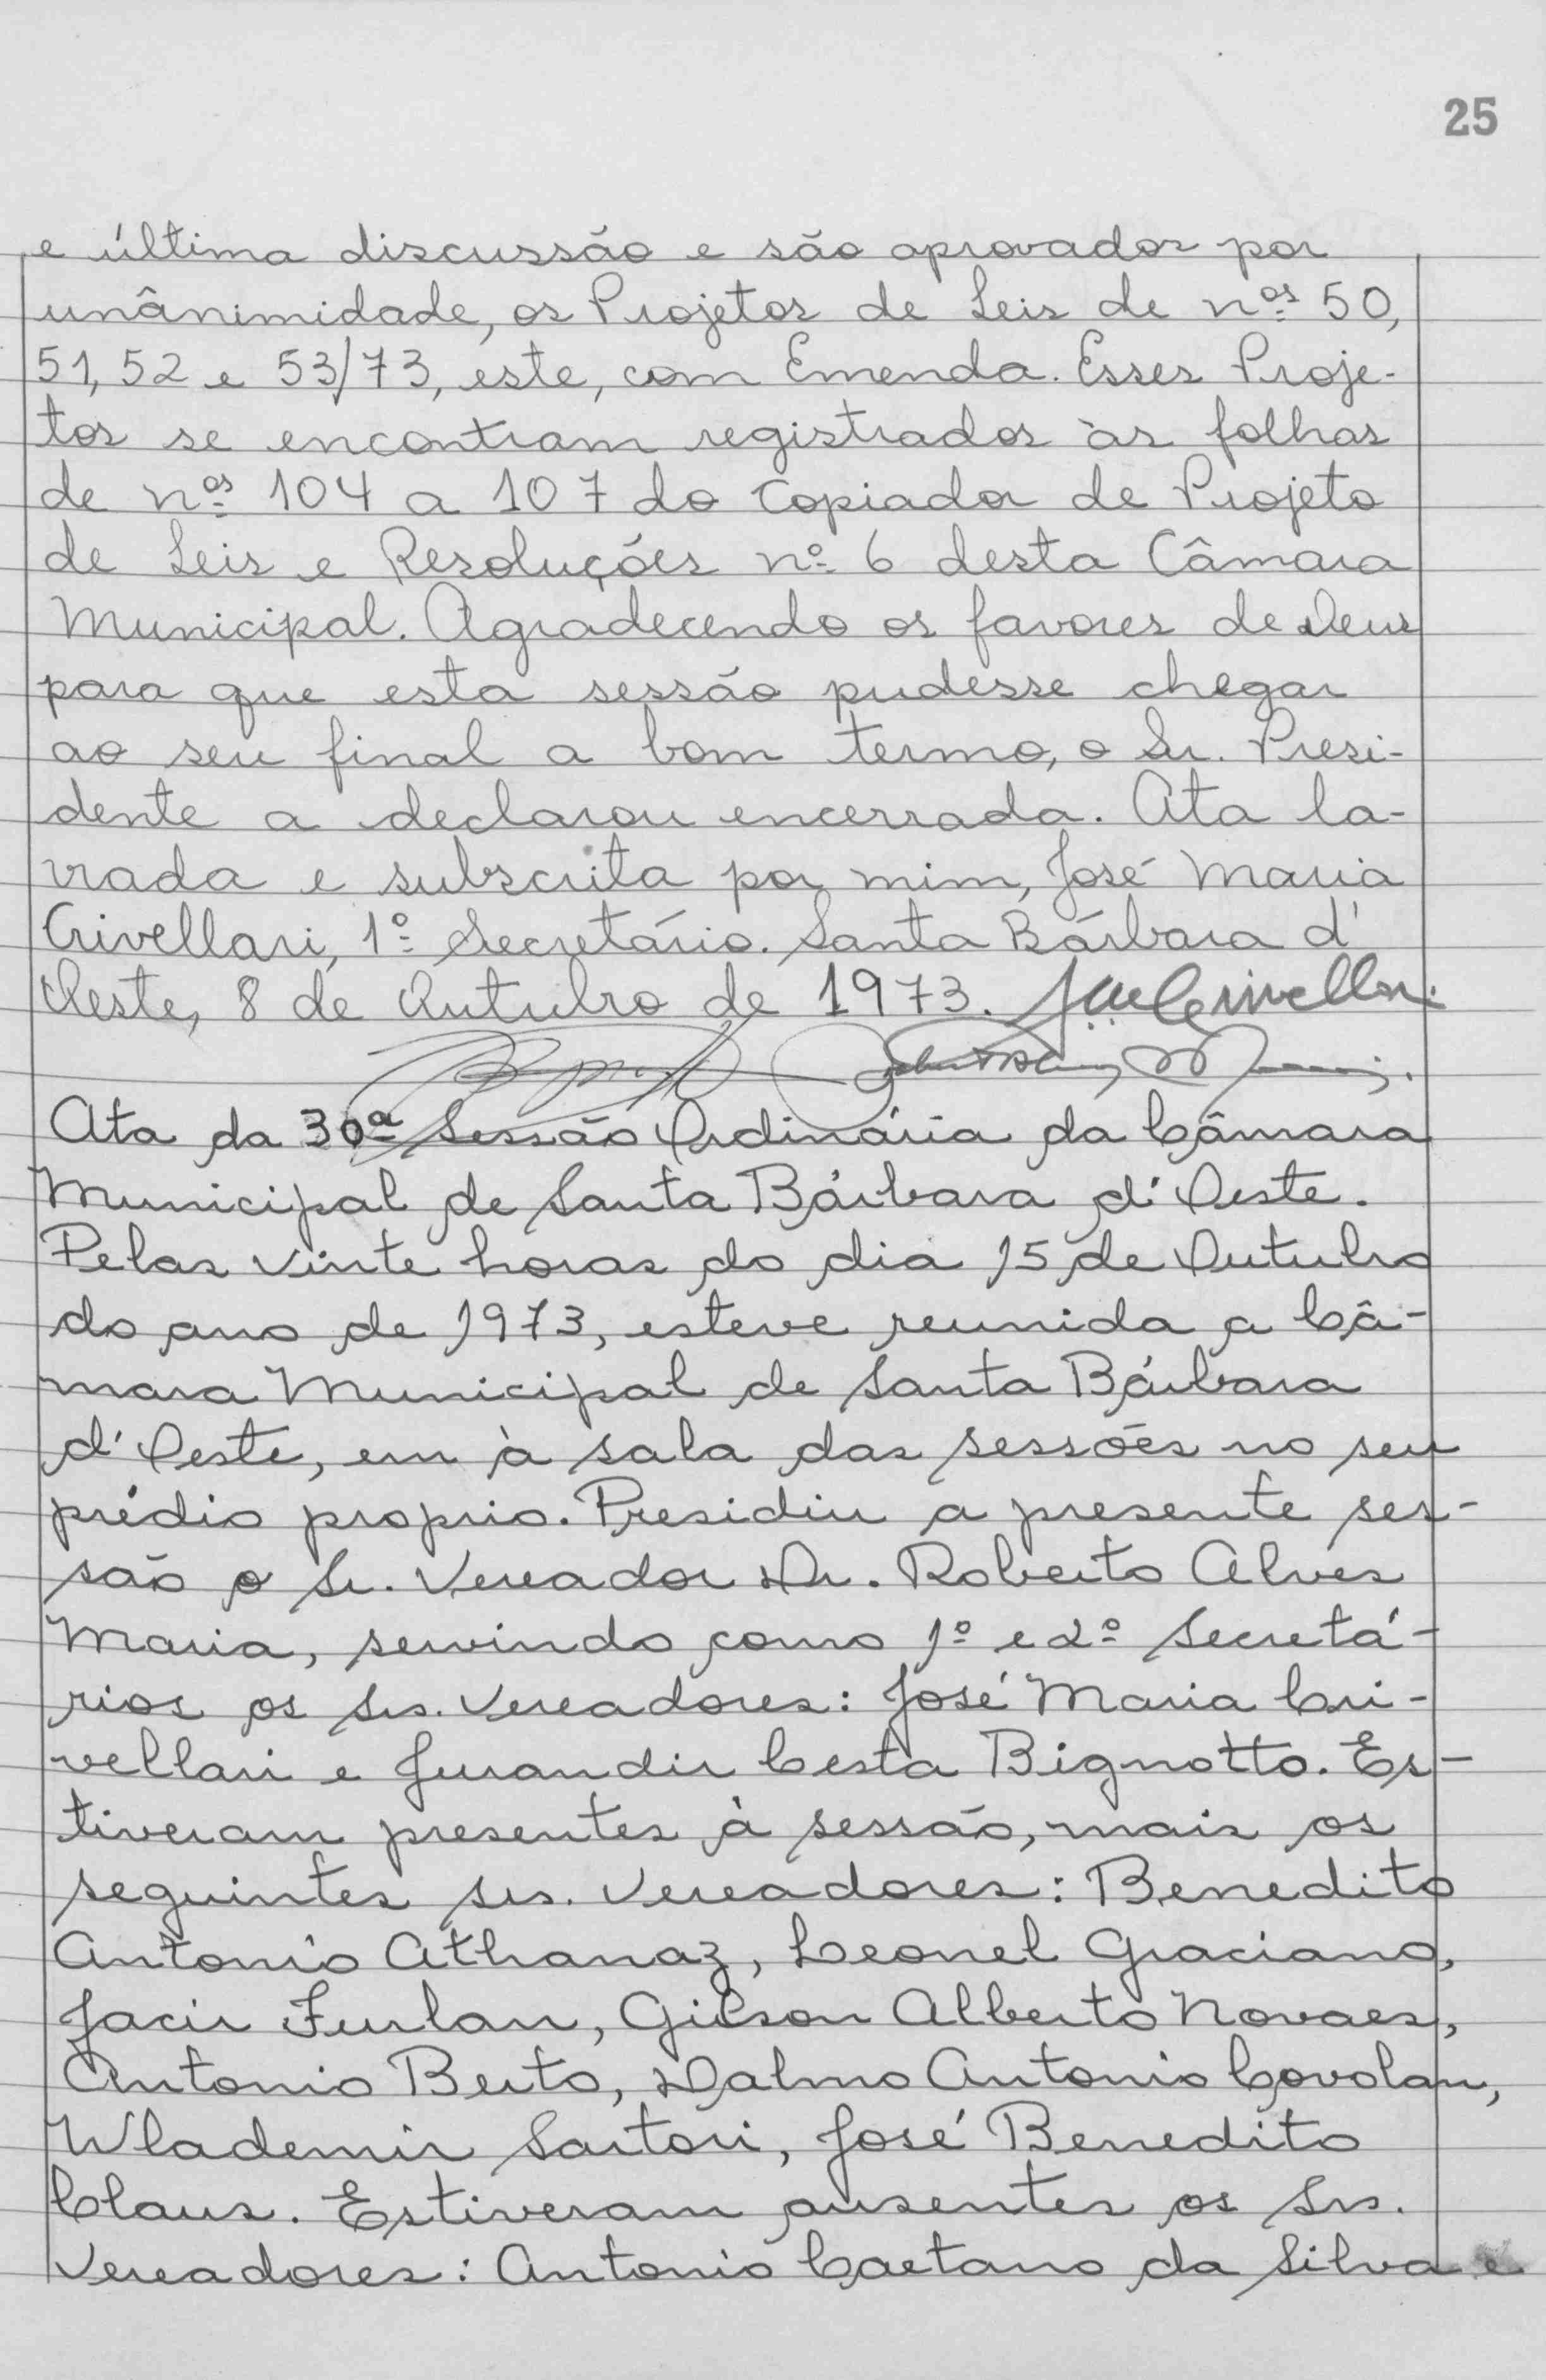 25
e última discussão e são aprovados por
unânimidade, os Projetos de Leis de nºs 50,
51, 52 e 53/73, este, com Emenda. Esses Proje-
tos se encontram registrados às folhas
de nºs 104 a 107 do Copiador de Projeto
de Leis e Resoluções nº 6 desta Câmara
Municipal. Agradecendo os favores de Deus
para que esta sessão pudesse chegar
ao seu final a bom termo, o Sr. Presi-
dente a declarou encerrada. Ata la-
vrada e subscrita por mim, José Maria
Crivellari, 1º Secretário. Santa Bárbara d'
Oeste, 8 de Outubro de 1973.
Ata da 30ª Sessão Ordinária da Câmara
Municipal de Santa Bárbara d'Oeste.
Pelas vinte horas do dia 15 de Outubro
do ano de 1973, esteve reunida a Câ-
mara Municipal de Santa Bárbara
d'Oeste, em à sala das sessões no seu
prédio proprio. Presidiu a presente ses-
são o Sr. Vereador Dr. Roberto Alves
Maria, servindo como 1º e 2º Secretá-
rios os Srs. Vereadores: José Maria Cri-
vellari e Jurandir Cesta Bignotto. Es-
tiveram presentes à sessão, mais os
seguintes srs. Vereadores: Benedito
Antonio Athanaz, Leonel Graciano,
Jacir Furlan, Gilson Alberto Novaes,
Antonio Berto, Dalmo Antonio Covolan,
Wlademir Sartori, José Benedito
Claus. Estiveram ausentes os Srs.
Vereadores: Antonio Caetano da Silva e